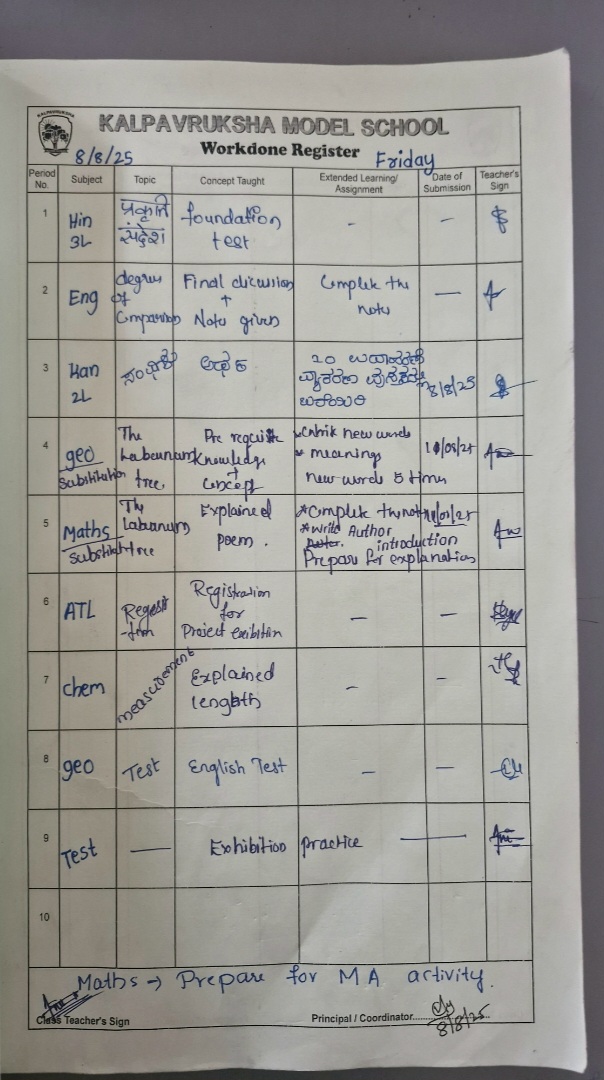 KALPAVRUKSHA
KALPAVRUKSHA MODEL SCHOOL
Workdone Register
8/8/25
Friday
Period No.
Subject
Topic
Concept Taught
Extended Learning/ Assignment
Date of Submission
Teacher's Sign
1
Hin
3L
प्रकृति
संदेश
foundation
test
-
-
2
Eng
degree
of
Comparison
Final discussion
+
Notes given
Complete the
notes
-
3
Kan
2L
20
8/8/25
4
geo
Substitution
The
Labaunum
tree.
Pre requisite
knowledge
+
Concept
new words
* meanings
new words 5 times
5
Maths
Substitut
The
Labaunum
tree
Explained
poem.
* Complete the not
* Write Author
introduction
Prepare for explanation
6
ATL
Regestr
-tion
Registration
for
Project exibition
-
-
7
chem
measurement
Explained
length
-
-
8
geo
Test
English Test
-
-
9
Test
-
Exhibition practice
-
10
Maths → Prepare for MA activity.
Class Teacher's Sign
Principal / Coordinator........
8/8/25